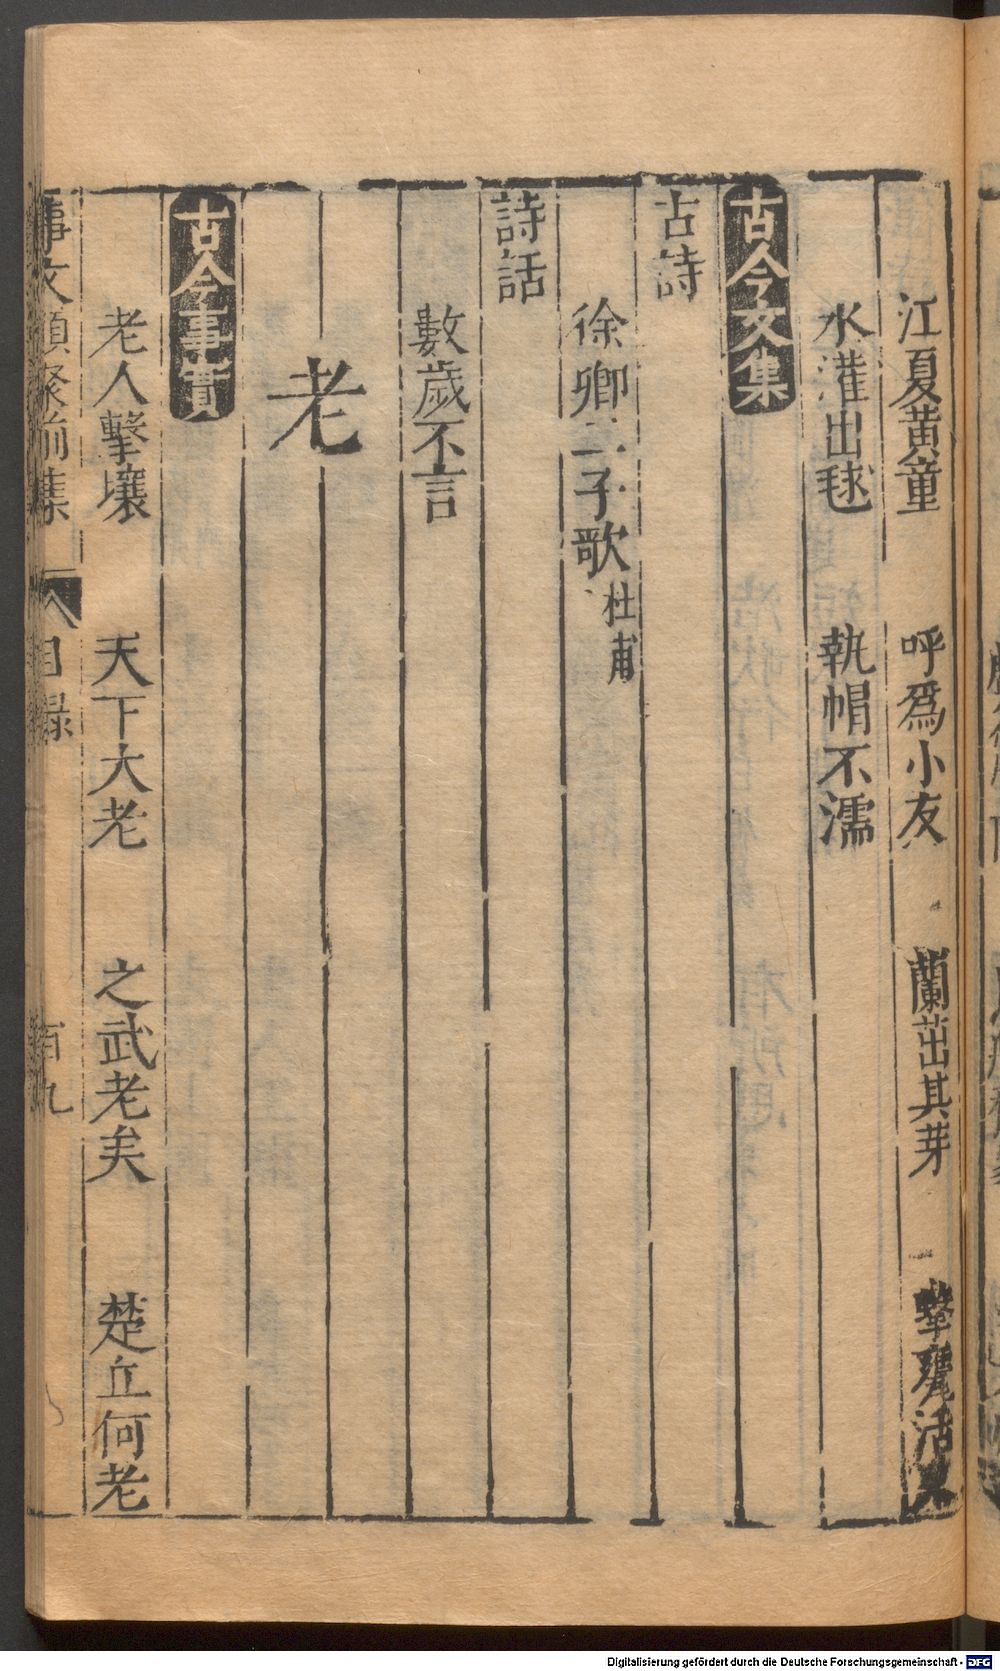 江夏黄童 呼爲小友 蘭茁其芽 擊甕活人
水灌出毬 執帽不濡
古今文集
古詩
徐卿二子歌 杜甫
詩話
數歲不言
老
古今事實
老人擊壤 天下大老 之武老矣 楚丘何老
事文類聚前集 目録 百九
Digitalisierung gefördert durch die Deutsche Forschungsgemeinschaft - DFG